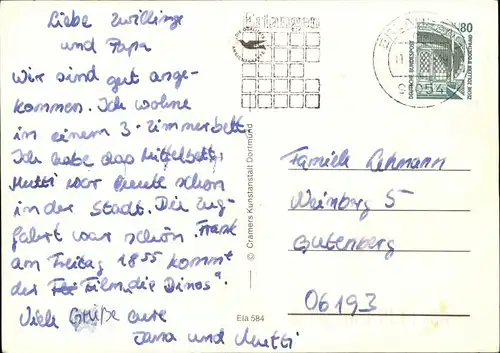 Liebe Zwillinge
und Papa
Wir sind gut ange-
kommen. Ich wohne
in einem 3-Zimmerbett
Ich habe das Mittelbett,
Mutti war heute schon
in der Stadt. Die Zug-
fahrt war schön. Frank
am Freitag 1855 kommt
der Film „die Dinos“.
Viele Grüße eure
Jana und Mutti
© Cramers Kunstanstalt Dortmund
Ela 584
Erlangen
80
DEUTSCHE BUNDESPOST
ZECHE ZOLLERN II · DORTMUND
Familie Lehmann
Weinberg 5
Gutenberg
06193